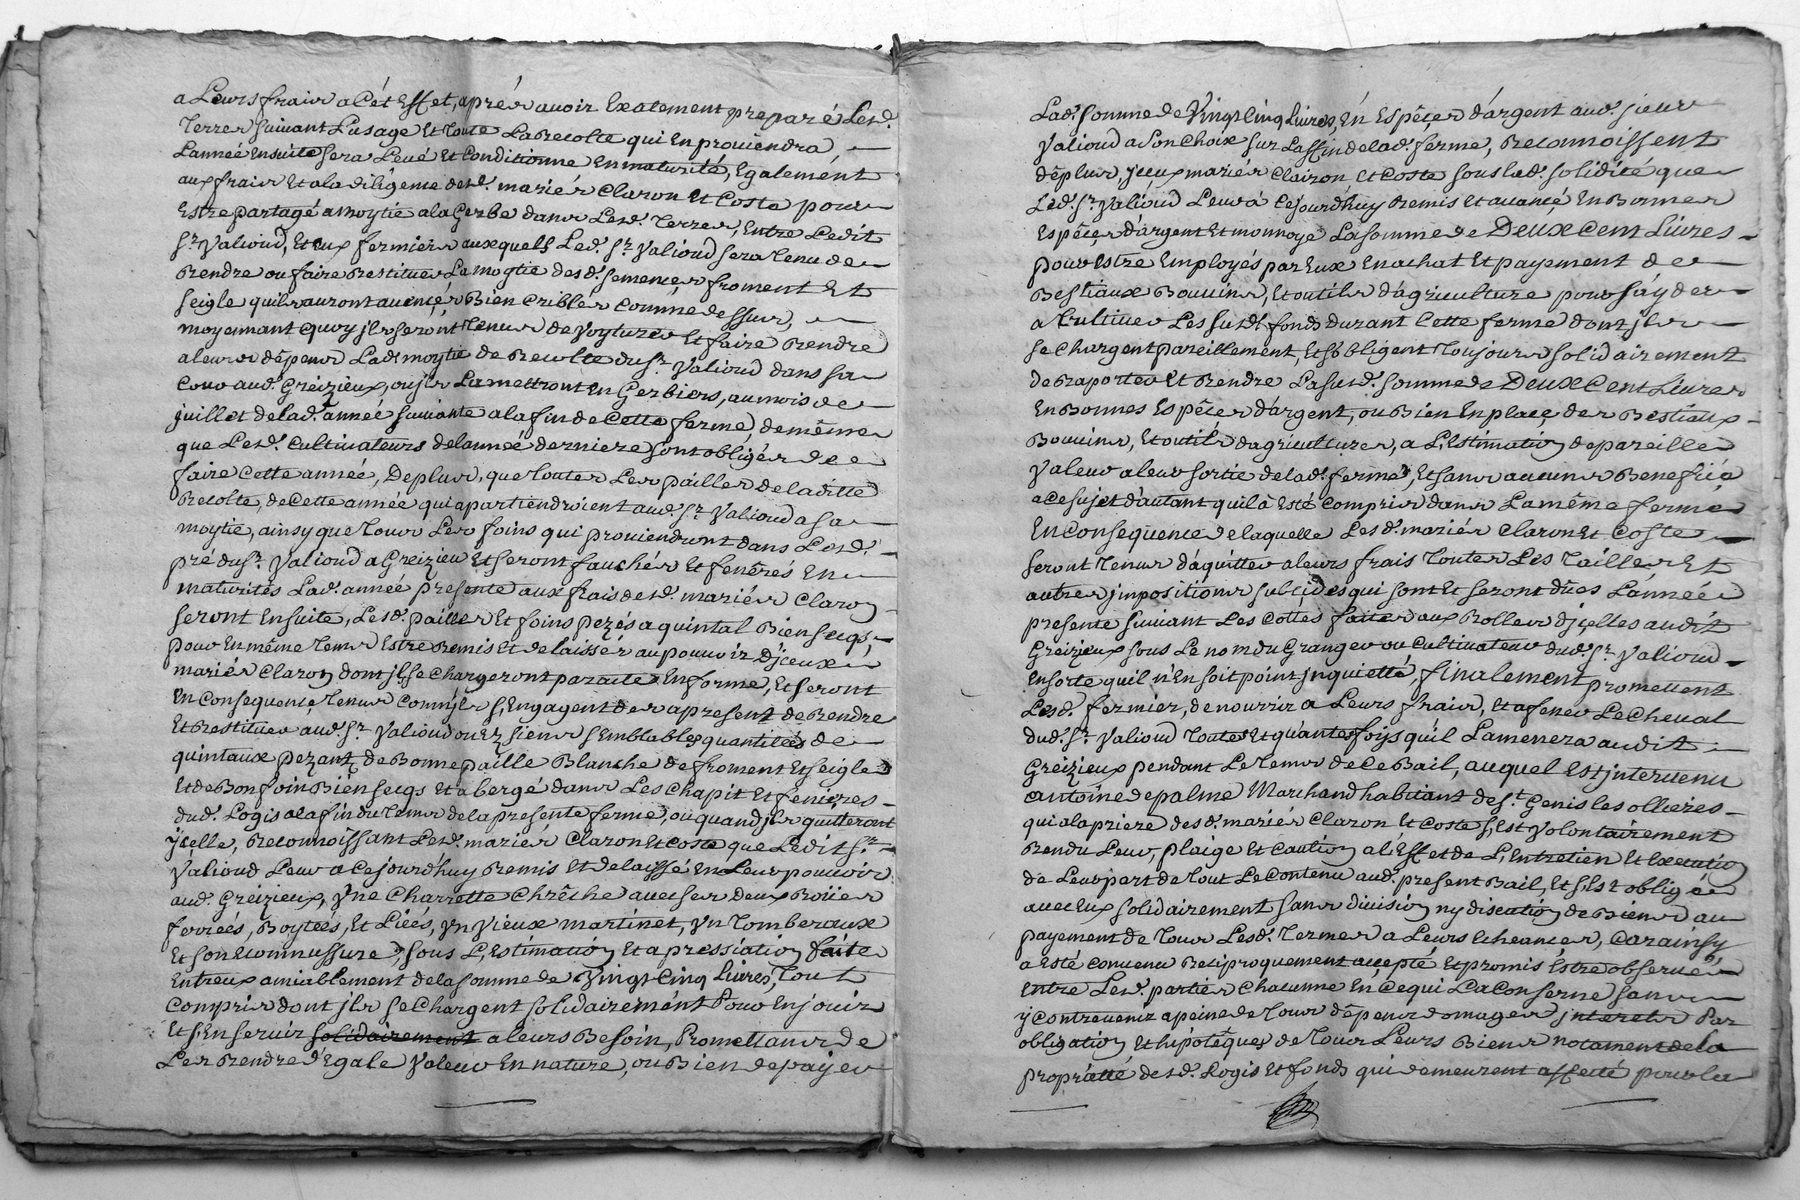 a Leurs frais a Cét Effet, aprés avoir Exatement preparé Lesd.
Terres suivant Lusage Et toute La Recolte qui En proviendra
Lannée Ensuite sera Levé Et Conditionne En maturité, Egalement
aux frais Et a la diligence desd. mariés Claron Et Coste pour
Estre partagé a moytie a la Gerbe dans Lesd. Terres, Entre Ledit
Sr. Valioud, Et Eux fermiers auxquels Led. Sr. Valioud sera tenu de
Rendre ou faire Restituer La moytie desd. semences froment Et
seigle quils auront avencés Bien Cribles comme dessus,
moyennant quoy jls seront tenus de Voyturer Et faire Rendre
a leurs dépens Lad. moytie de Recolte du Sr. Valioud dans sa
Cour aud. Greizieux, ou jls La mettront En Gerbiers, au mois de
juillet de lad. année suivante a la fin de Cette ferme, de même
que Lesd. Cultivateurs de lannée derniere sont obligés de
faire Cette année, De plus, que toutes Les pailles de laditte
Recolte, de Cette année qui apartiendroient aud. Sr. Valioud a sa
moytie, ainsy que tous Les foins qui proviendront dans Lesd.
pré du Sr. Valioud a Greizieu Et seront fauchés Et fenérés En
maturités Lad. année presente aux frais desd. mariés Claron
seront Ensuite, Lesd. pailles Et foins pezés a quintal Bien secqs,
pour En même tems Estre Remis Et delaissés au pouvoir Djceux
mariés Claron dont jls se chargeront par acte En forme, Et seront
En Consequence tenus Comm jls s'Engagent des a present de Rendre
Et Restituer aud. Sr. Valioud ou Ez siens semblables quantités de
quintaux pezant de Bonne paille Blanche de froment Et seigle
Et de Bon foin Bien secqs Et abergé dans Les Chapit Et fenieres
dud. Logis a la fin du tems de la presente ferme, ou quand jls quitteront
jcelle, Reconnoissant Lesd. mariés Claron Et Coste que Ledit Sr.
Valioud Leur a Cejourd'huy Remis Et delaissé En Leur pouvoir
aud. Greizieux, Vne Charrette Chrêche avec ses deux Roües
ferrées, Boytées, Et Liées, Vn Vieux martinet, Vn Tomberaux
Et son Econnussure, sous L'Estimation Et apressiation faite
Entreux amiablement de la somme de Vingt Cinq Livres, Tout
Compris dont jls se Chargent solidairement Pour En jouir
Et s'En servir solidairement a leurs Besoin, Promettans de
Les Rendre d'Egale Valeur En nature, ou Bien de payer
Lad. somme de Vingt Cinq Livres, En Espêces d'argent aud. sieur
Valioud a son Choix sur La ffin de lad. ferme, Reconnoissent
dêplus, jceux mariés Clairon Et Coste sous lad. solidité que
Led. Sr. Valioud Leur à Cejourd'huy Remis Et avancé En Bonnes
Espêces d'argent Et monnoye La somme de Deux Cent Livres
pour Estre Employés par Eux En achat Et payement de
Bestiaux Bouvins, Et outils d'agriculture pour s'ayder
a Cultiver Les susd. fonds durant Cette ferme dont jls
se Chargent pareillement, Et s'obligent Toujours solidairement
de Raporter Et Rendre La susd. somme de Deux Cent Livres
En Bonnes Espêces d'argent, ou Bien En place des Bestiaux
Bouvins, Et outils dagriculture, a L'Estimation de pareille
Valeur a leur sortie de lad. ferme, Et sans aucuns Benefice
a Ce sujet d'autant quil à Esté Compris dans La même ferme
En Conseqüence de laquelle Lesd. mariés Claron Et Coste
seront tenus d'aquitter a leurs frais toutes Les Tailles Et
autres jmpositions subcides qui sont Et seront dües L'année
presente suivant Les Cottes faites aux Rolles djcelles audit
Greizieux sous Le nom du Granger ou Cultivateur dud. Sr. Valioud
Ensorte quil n'En soit point jnquietté, finalement promettent
Lesd. fermier, de nourrir a Leurs frais, Et afener Le Cheval
dud. Sr. Valioud Toutes Et quantes foys qu'il Lamenera audit
Greizieux pendant Le tems de Ce Bail, auquel Est jntervenu
antoine depalme Marchand habitant de St. Genis les ollieres
qui a la priere desd. mariés Claron Et Coste s'Est Volontairement
Rendu Leur, plaige Et Caution a l'Effet de L'Entretien Et Execution
de Leur part de tout Le Contenu aud. present Bail, Et s'Est obligée
avec Eux solidairement sans division ny discution de Biens au
payement de tous Lesd. Termes a Leurs Echeances, Car ainsy
a Esté Convenu Reciproquement accepté Et promis Estre observé
Entre Lesd. parties Chacunne En Ce qui La Conserne sans
y Contrevenir a peine de tous dépens domages jnterets Par
obligation Et hipotêques de tous Leurs Biens notament de la
propriétté desd. Logis Et fonds qui demeurent affecté pour la